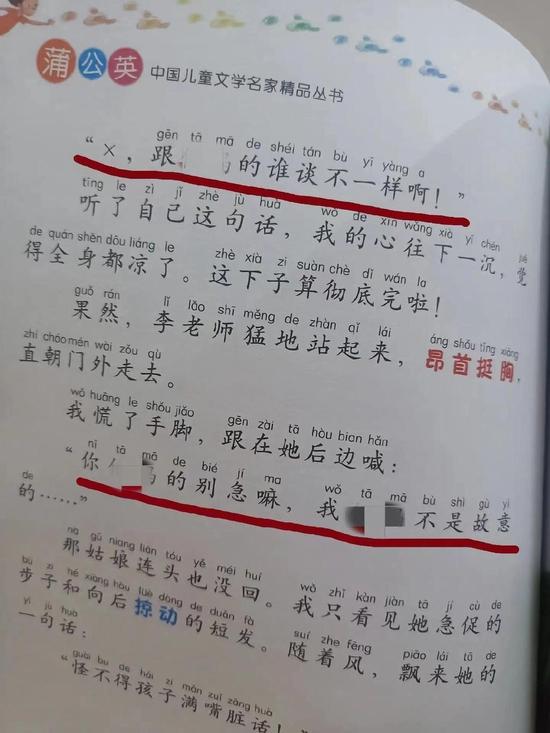 蒲公英 中国儿童文学名家精品丛书
gēn tā mā de shéi tán bù yī yàng a
“×，跟 的谁谈不一样啊！”
tīng le zì jǐ zhè jù huà wǒ de xīn wǎng xià yī chén jué
听了自己这句话，我的心往下一沉，觉
de quán shēn dōu liáng le zhè xià zi suàn chè dǐ wán la
得全身都凉了。这下子算彻底完啦！
guǒ rán lǐ lǎo shī měng de zhàn qǐ lái áng shǒu tǐng xiōng
果然，李老师猛地站起来，昂首挺胸，
zhí cháo mén wài zǒu qù
直朝门外走去。
wǒ huāng le shǒu jiǎo gēn zài tā hòu bian hǎn
我慌了手脚，跟在她后边喊：
nǐ tā mā de bié jí ma wǒ tā mā bù shì gù yì
“你 的别急嘛，我 不是故意
de
的……”
nà gū niang lián tóu yě méi huí
那姑娘连头也没回。
wǒ zhǐ kàn jiàn tā jí cù de
我只看见她急促的
bù zi hé xiàng hòu lüè dòng de duǎn fà
步子和向后掠动的短发。
suí zhe fēng piāo lái tā de
随着风，飘来她的
yī jù huà
一句话：
guài bu de hái zi mǎn zuǐ zāng huà
“怪不得孩子满嘴脏话！